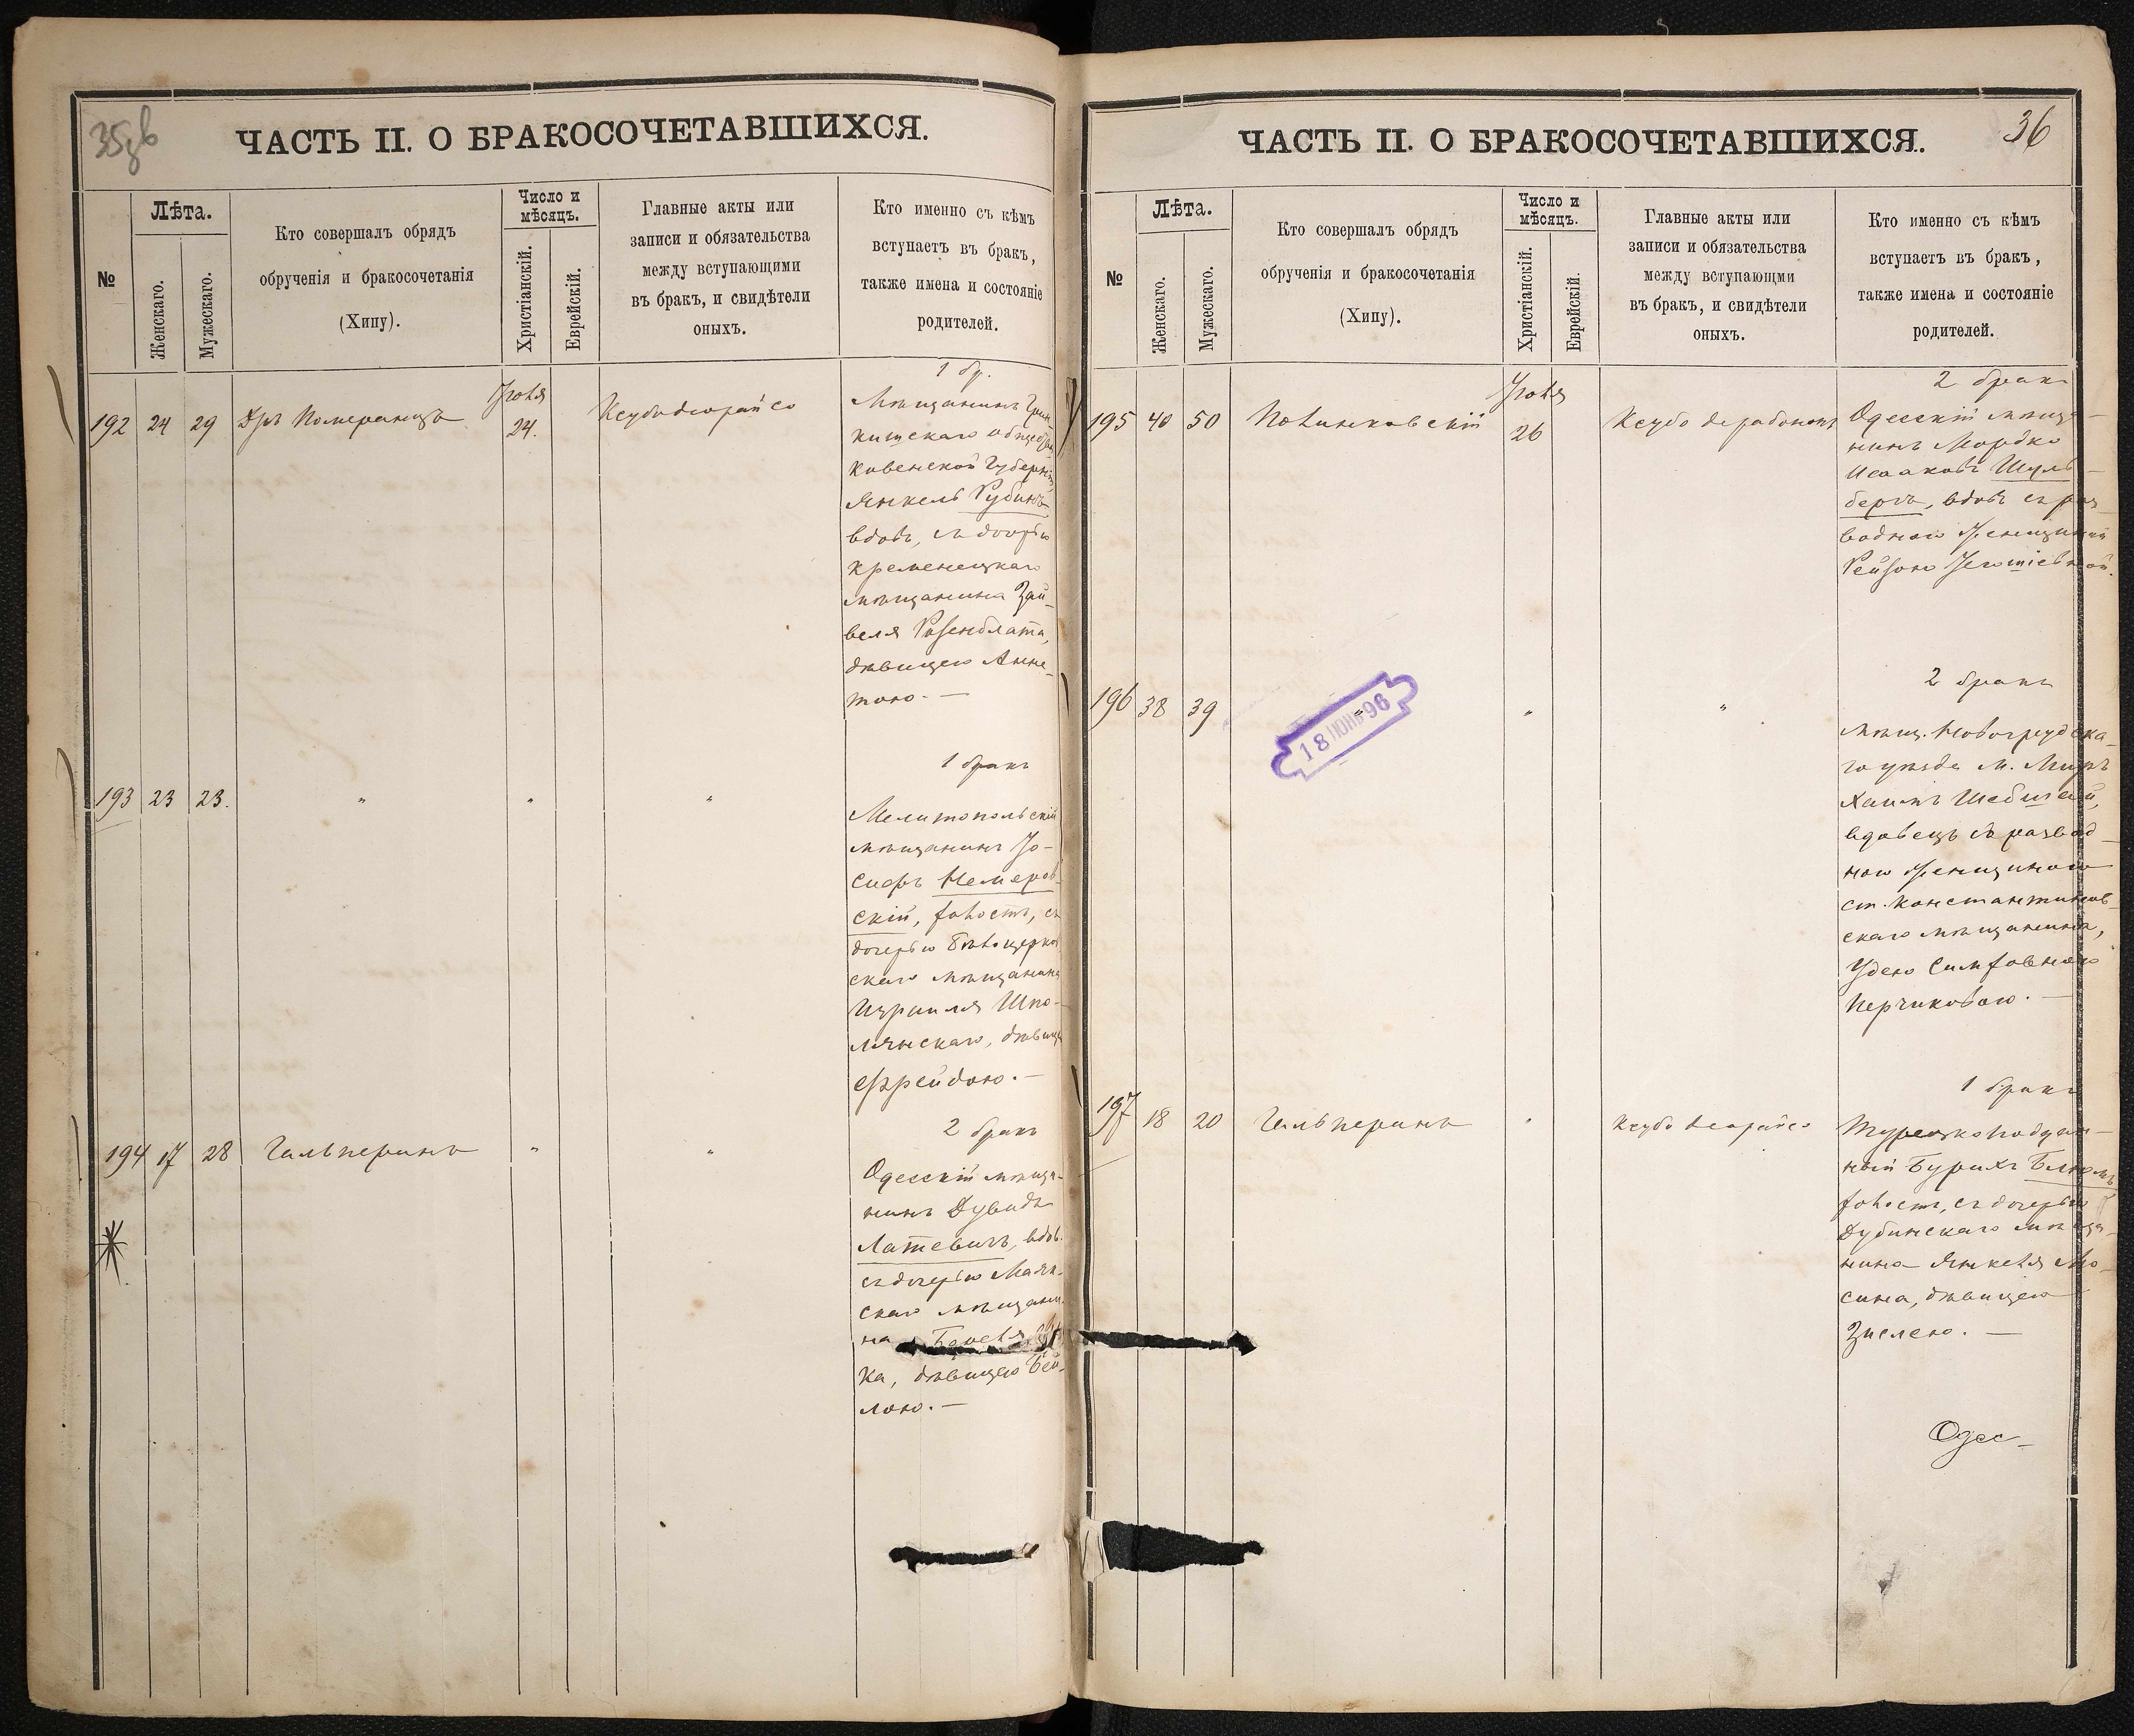 35зв
ЧАСТЬ II. О БРАКОСОЧЕТАВШИХСЯ.
№
Лѣта.
Женскаго.
Мужескаго.
Кто совершалъ обрядъ
обрученія и бракосочетанія
(Хипу).
Число и
мѣсяцъ.
Христіанскій.
Еврейскій.
Главные акты или
записи и обязательства
между вступающими
въ бракъ, и свидѣтели
оныхъ.
Кто именно съ кѣмъ
вступаетъ въ бракъ,
также имена и состояніе
родителей.
192 24 29 Дръ Померанцъ
Іюня
24.
Ксубо деорайсо
1 бр.
Мѣщанинъ
Ковенской Губерніи
Янкель Рубинъ
вдовъ, съ дочерью
Кременецкаго
мѣщанина Зай-
веля Розенблата,
дѣвицею Анне-
тою. —
193 23 23. " " "
1 бракъ
Мелитопольскій
мѣщанинъ Іо-
сифъ Немеров-
скій, холостъ, съ
дочерью Бѣлоцерков
скаго мѣщанина
Израиля Шпо-
лянскаго, дѣвиц
Фрейдою. —
194 17 28 Гальперинъ " "
2 бракъ
Одесскій мѣща-
нинъ Дувидъ
Латевичъ, вдов.
съ дочерью Маяк-
скаго мѣщани-
на
ка, дѣвицею Бей-
лою. —
ЧАСТЬ II. О БРАКОСОЧЕТАВШИХСЯ.
36
№
Лѣта.
Женскаго.
Мужескаго.
Кто совершалъ обрядъ
обрученія и бракосочетанія
(Хипу).
Число и
мѣсяцъ.
Христіанскій.
Еврейскій.
Главные акты или
записи и обязательства
между вступающми
въ бракъ, и свидѣтели
оныхъ.
Кто именно съ кѣмъ
вступаетъ въ бракъ,
также имена и состояніе
родителей.
195 40 50 Полинковскій
Іюля
26
Ксубо дерабононъ
2 бракъ
Одесскій мѣща-
нинъ Мордко
Исааковъ Шуль-
бергъ, вдовъ съ раз-
водною женщиной
Рейзою
196 38 39 " " "
18 ІЮН 96
2 бракъ
мѣщ. Новогрудска-
го уѣзда м. Миръ
Хаимъ
вдовецъ съ развод-
ною женщиною
ст. Константинов-
скаго мѣщанина,
Удею
Перчиковою. —
197 18 20 Гальперинъ " Ксубо деорайсо
1 бракъ
Турецкоподдан-
ный Бурихъ Блюмъ
холостъ, съ дочерью
Дубинскаго мѣща-
нина Янкеля Мо-
сина, дѣвицею
Зислею. —
Одес-